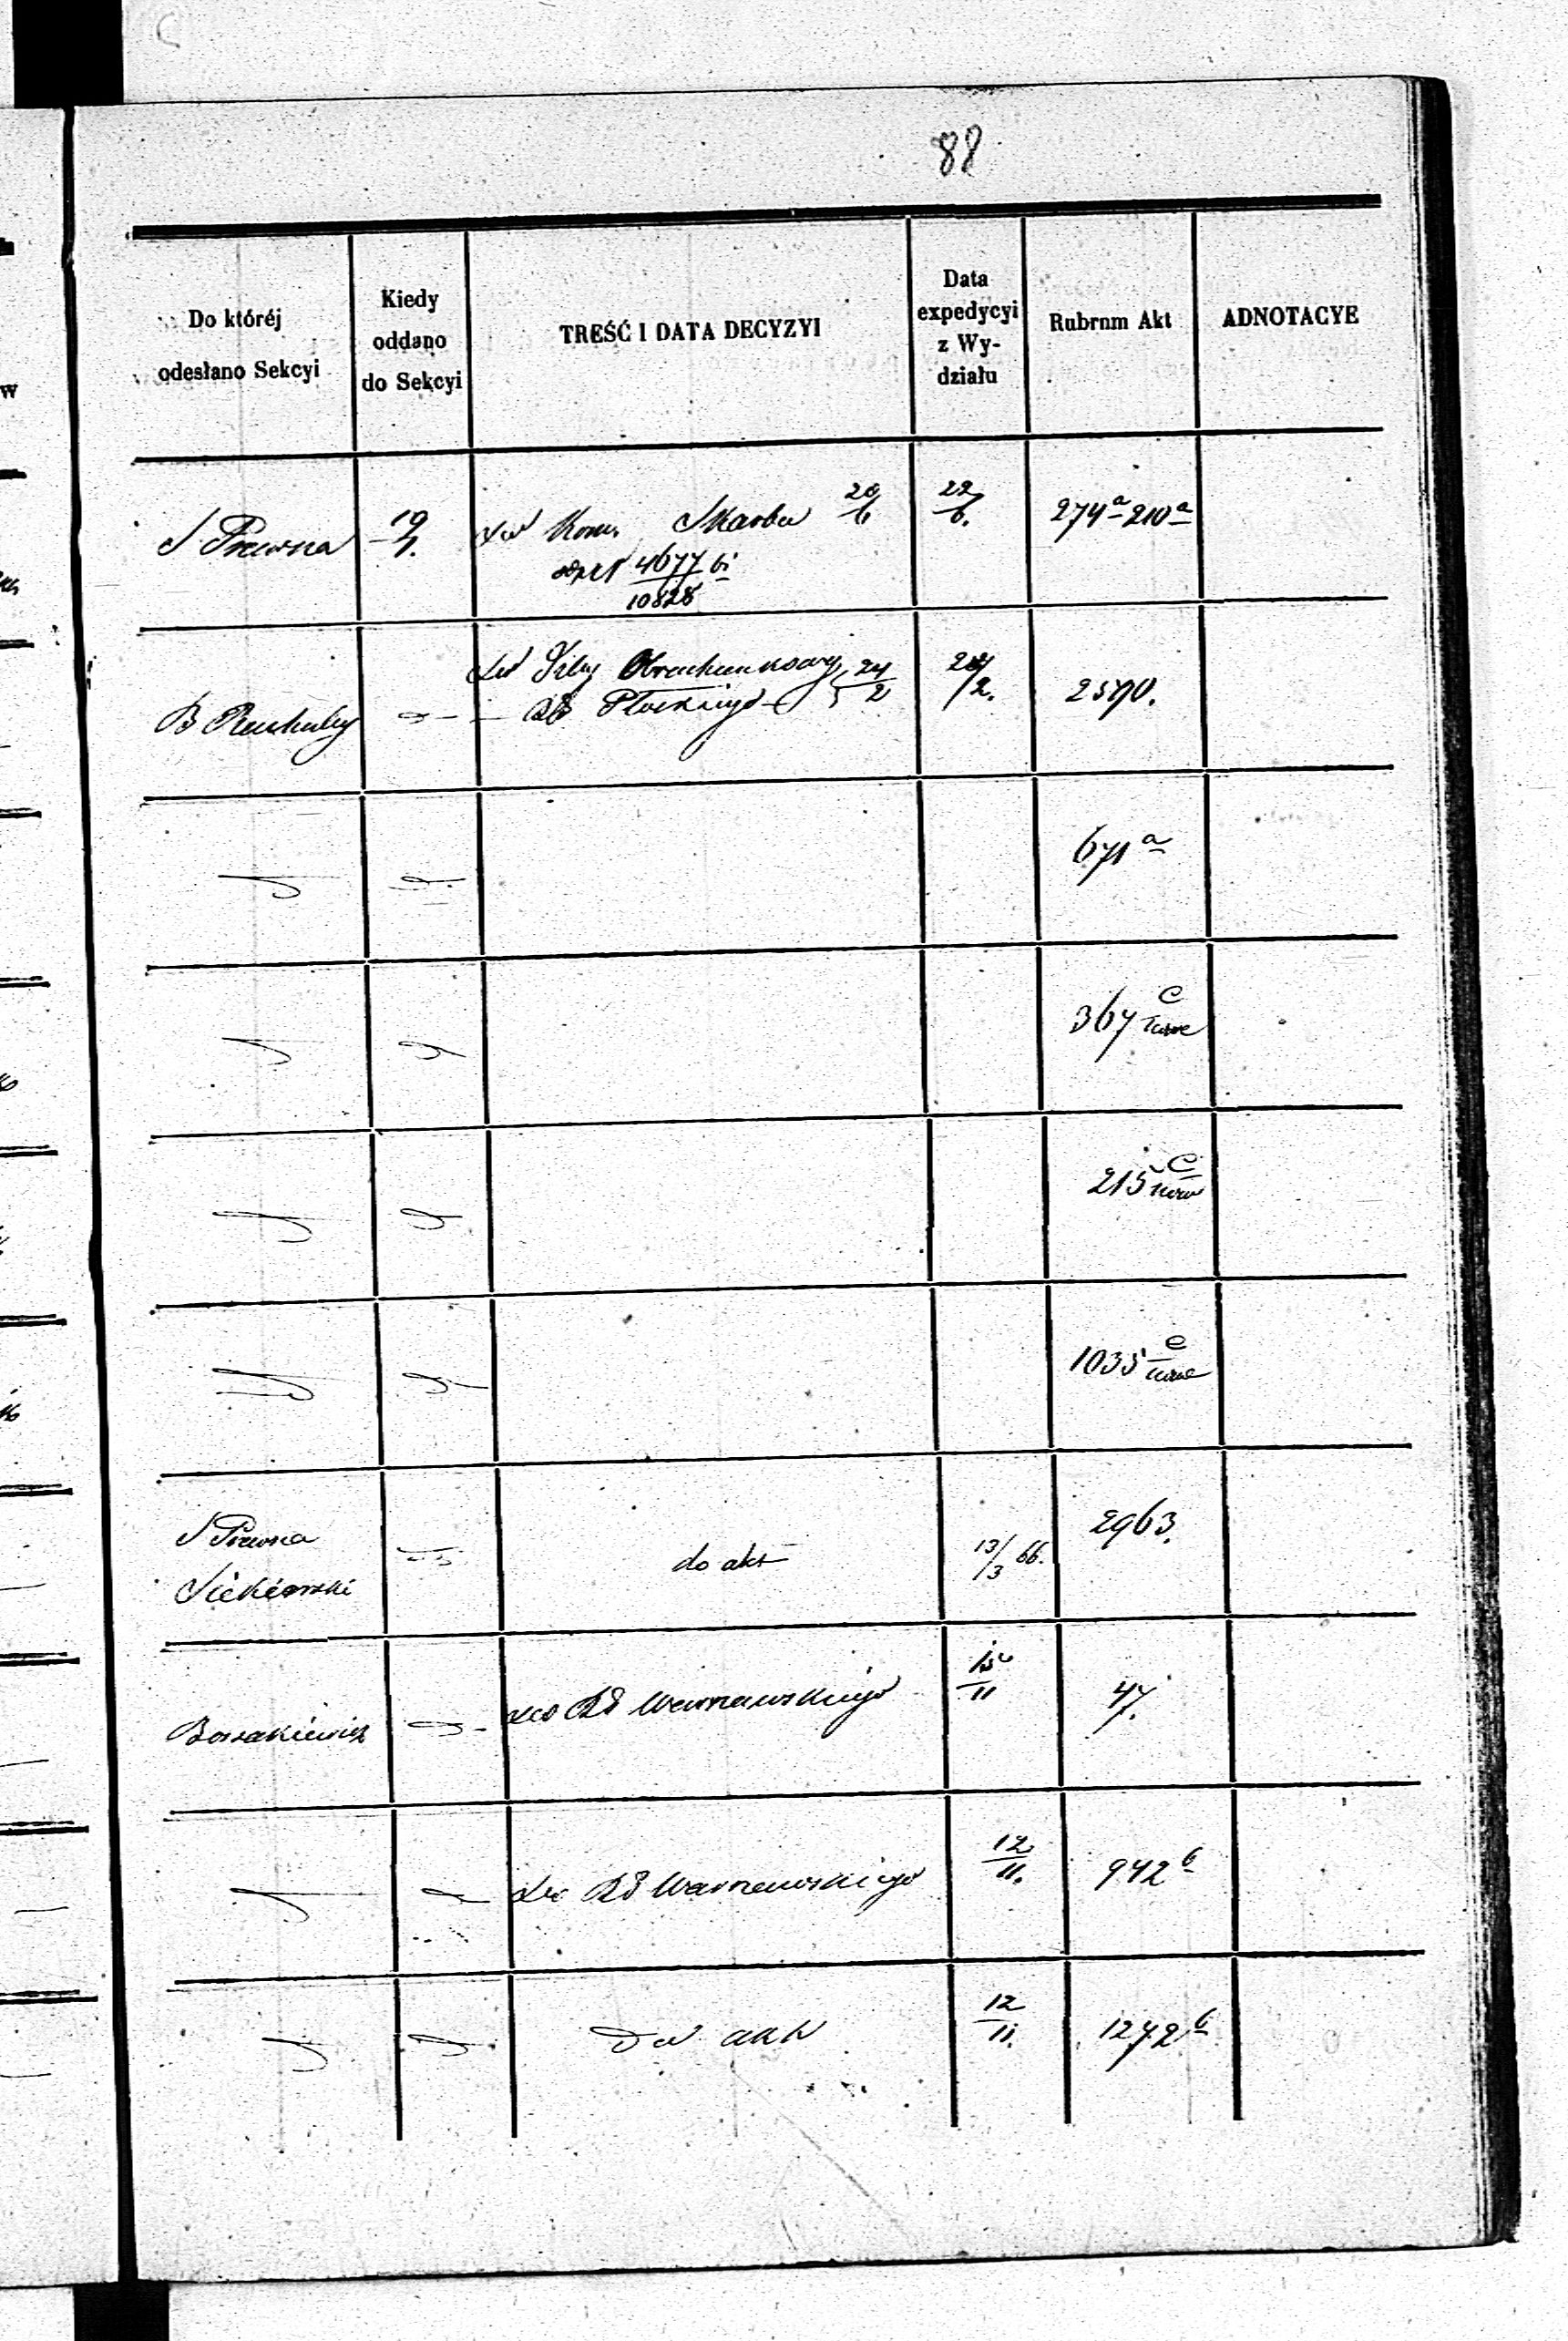 88
Do któréj
odesłano Sekcyi
Kiedy
oddano
do Sekcyi
TREŚĆ I DATA DECYZYI
Data
expedycyi
z Wy-
działu
Rubrnm Akt
ADNOTACYE
S Prawna
19/1.
do Kom. Skarbu 20/6
22/6.
274 a 210 a
4677 bi
10828
B Rachuby
do Izby Obrachunkowej
RG Płockiego
24/2
24/2.
2570.
671 a
367 c
215 c
1035 c
S Prawna
Siekierski
do akt
13/3 66.
2963.
Bossakiewicz
do RG Warszawskiego
15/11
47.
do RG Warszawskiego
12/11.
942 b
Do akt
12/11.
1272 b